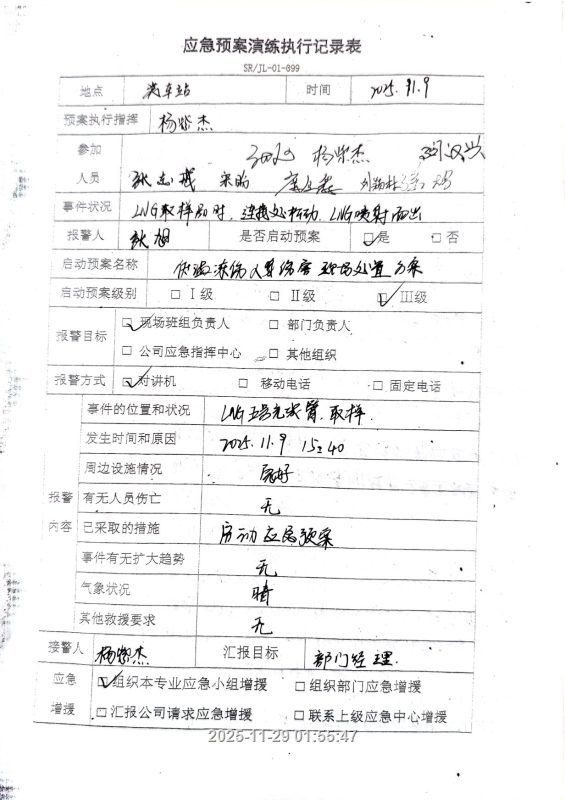 应急预案演练执行记录表
SR/JL-01-099
地点 装车站 时间 2025.11.9
预案执行指挥 杨紫杰
参加 杨紫杰
人员
事件状况 LNG取样台时,连接处松动,LNG喷射而出
报警人 是否启动预案 ☑是 □否
启动预案名称 低温冻伤人员伤害现场处置方案
启动预案级别 □Ⅰ级 □Ⅱ级 ☑Ⅲ级
报警目标 ☑现场班组负责人 □部门负责人
□公司应急指挥中心 □其他组织
报警方式 ☑对讲机 □移动电话 □固定电话
报警内容
事件的位置和状况 LNG 装车臂取样.
发生时间和原因 2025.11.9 15:40
周边设施情况 良好
有无人员伤亡 无
已采取的措施 启动应急预案
事件有无扩大趋势 无
气象状况 晴
其他救援要求 无
接警人 杨紫杰 汇报目标 部门经理.
应急增援 ☑组织本专业应急小组增援 □组织部门应急增援
□汇报公司请求应急增援 □联系上级应急中心增援
2025-11-29 01:55:47